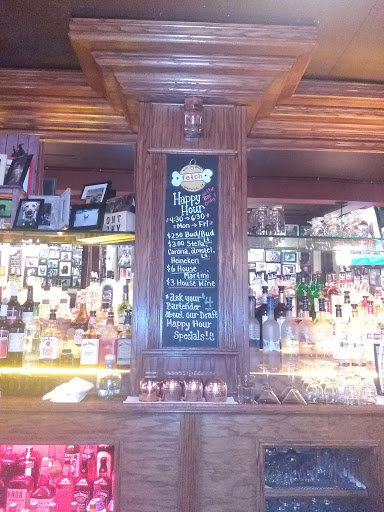 fetch
Happy
Hour
4:30 → 6:30
Mon → Fri
$2.50 Bud/Bud
$3.00 Stella Lt
Corona, Amstel Lt
Heineken
$6 House
Martini
$3 House Wine
*Ask your
Bartender
about our Draft
Happy Hour
Specials!